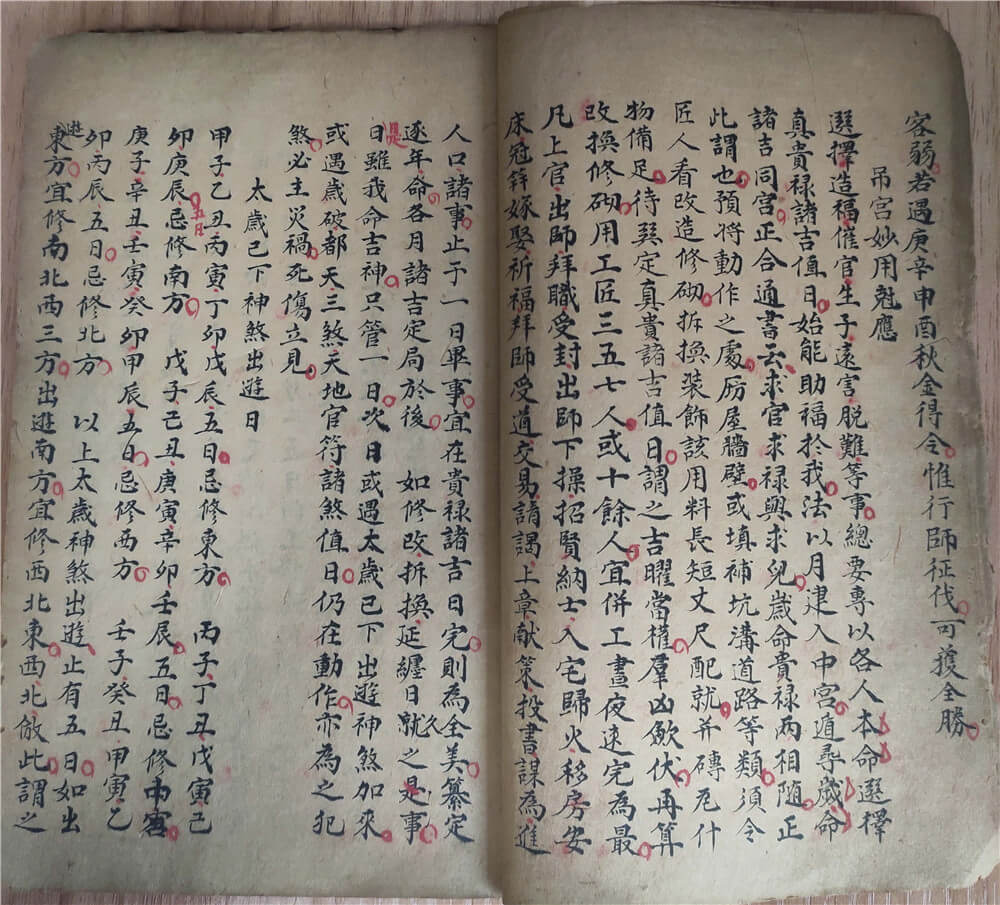 容弱若遇庚辛申酉秋金得令惟行師征伐可獲全勝
吊宮妙用尅應
選擇造福催官生子遠害脱難等事總要專以各人本命選擇
真貴禄諸吉値日始能助福於我法以月建入中宮遁尋歲命
諸吉同宮正合通書云求官求禄與求兒歲命貴禄兩相隨正
此謂也預將動作之處房屋牆壁或填補坑溝道路等類須令
匠人看改造修砌拆換装飾該用料長短丈尺配就并磚瓦什
物備足待算定真貴諸吉值日謂之吉曜當權羣凶歛伏再算
改換修砌用工匠三五七人或十餘人宜併工晝夜速完為最
凡上官出師拜職受封出師下操招賢納士入宅歸火移房安
床冠笄嫁娶祈福拜師受道交易請謁上章献策投書謀為進
人口諸事止于一日畢事宜在貴禄諸吉日完則為全美纂定
逐年命各月諸吉定局於後 如修改拆換延纏日就久之是事
日雖我命吉神只管一日次日或遇太歲已下出遊神煞加來
或遇歲破都天三煞天地官符諸煞值日仍在動作亦為之犯
煞必主災禍死傷立見
太歲已下神煞出遊日
甲子乙丑丙寅丁卯戊辰五日忌修東方 丙子丁丑戊寅己
卯庚辰五日忌修南方 戊子己丑庚寅辛卯壬辰五日忌修中宮
庚子辛丑壬寅癸卯甲辰五日忌修西方 壬子癸丑甲寅乙
卯丙辰五日忌修北方 以上太歲神煞出遊止有五日如出
遊東方宜修南北西三方出遊南方宜修西北東西北倣此謂之